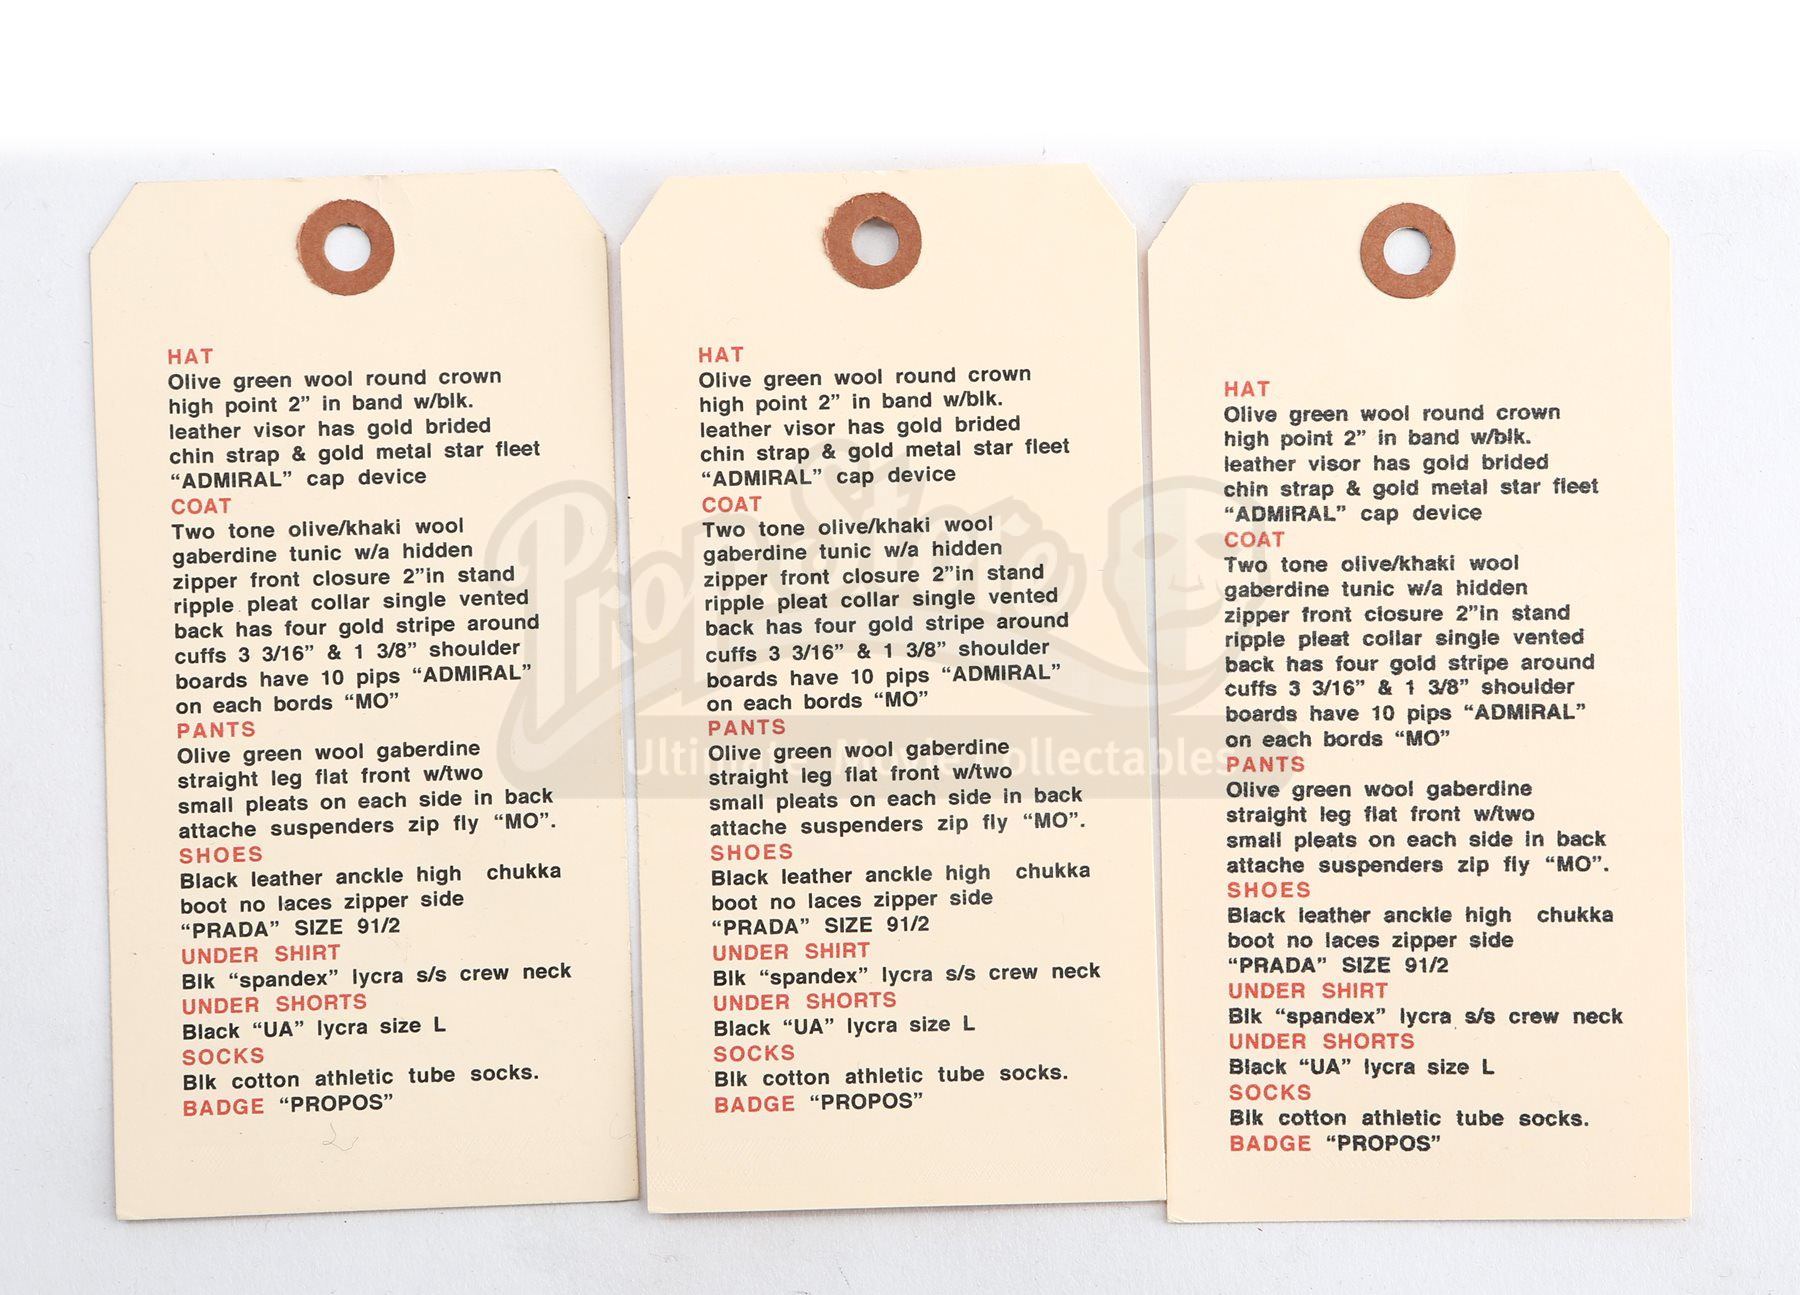 HAT
Olive green wool round crown
high point 2” in band w/blk.
leather visor has gold brided
chin strap & gold metal star fleet
“ADMIRAL” cap device
COAT
Two tone olive/khaki wool
gaberdine tunic w/a hidden
zipper front closure 2”in stand
ripple pleat collar single vented
back has four gold stripe around
cuffs 3 3/16” & 1 3/8” shoulder
boards have 10 pips “ADMIRAL”
on each bords “MO”
PANTS
Olive green wool gaberdine
straight leg flat front w/two
small pleats on each side in back
attache suspenders zip fly “MO”.
SHOES
Black leather anckle high chukka
boot no laces zipper side
“PRADA” SIZE 91/2
UNDER SHIRT
Blk “spandex” lycra s/s crew neck
UNDER SHORTS
Black “UA” lycra size L
SOCKS
Blk cotton athletic tube socks.
BADGE “PROPOS”
HAT
Olive green wool round crown
high point 2” in band w/blk.
leather visor has gold brided
chin strap & gold metal star fleet
“ADMIRAL” cap device
COAT
Two tone olive/khaki wool
gaberdine tunic w/a hidden
zipper front closure 2”in stand
ripple pleat collar single vented
back has four gold stripe around
cuffs 3 3/16” & 1 3/8” shoulder
boards have 10 pips “ADMIRAL”
on each bords “MO”
PANTS
Olive green wool gaberdine
straight leg flat front w/two
small pleats on each side in back
attache suspenders zip fly “MO”.
SHOES
Black leather anckle high chukka
boot no laces zipper side
“PRADA” SIZE 91/2
UNDER SHIRT
Blk “spandex” lycra s/s crew neck
UNDER SHORTS
Black “UA” lycra size L
SOCKS
Blk cotton athletic tube socks.
BADGE “PROPOS”
HAT
Olive green wool round crown
high point 2” in band w/blk.
leather visor has gold brided
chin strap & gold metal star fleet
“ADMIRAL” cap device
COAT
Two tone olive/khaki wool
gaberdine tunic w/a hidden
zipper front closure 2”in stand
ripple pleat collar single vented
back has four gold stripe around
cuffs 3 3/16” & 1 3/8” shoulder
boards have 10 pips “ADMIRAL”
on each bords “MO”
PANTS
Olive green wool gaberdine
straight leg flat front w/two
small pleats on each side in back
attache suspenders zip fly “MO”.
SHOES
Black leather anckle high chukka
boot no laces zipper side
“PRADA” SIZE 91/2
UNDER SHIRT
Blk “spandex” lycra s/s crew neck
UNDER SHORTS
Black “UA” lycra size L
SOCKS
Blk cotton athletic tube socks.
BADGE “PROPOS”
Prop Store
Ultimate Movie Collectables